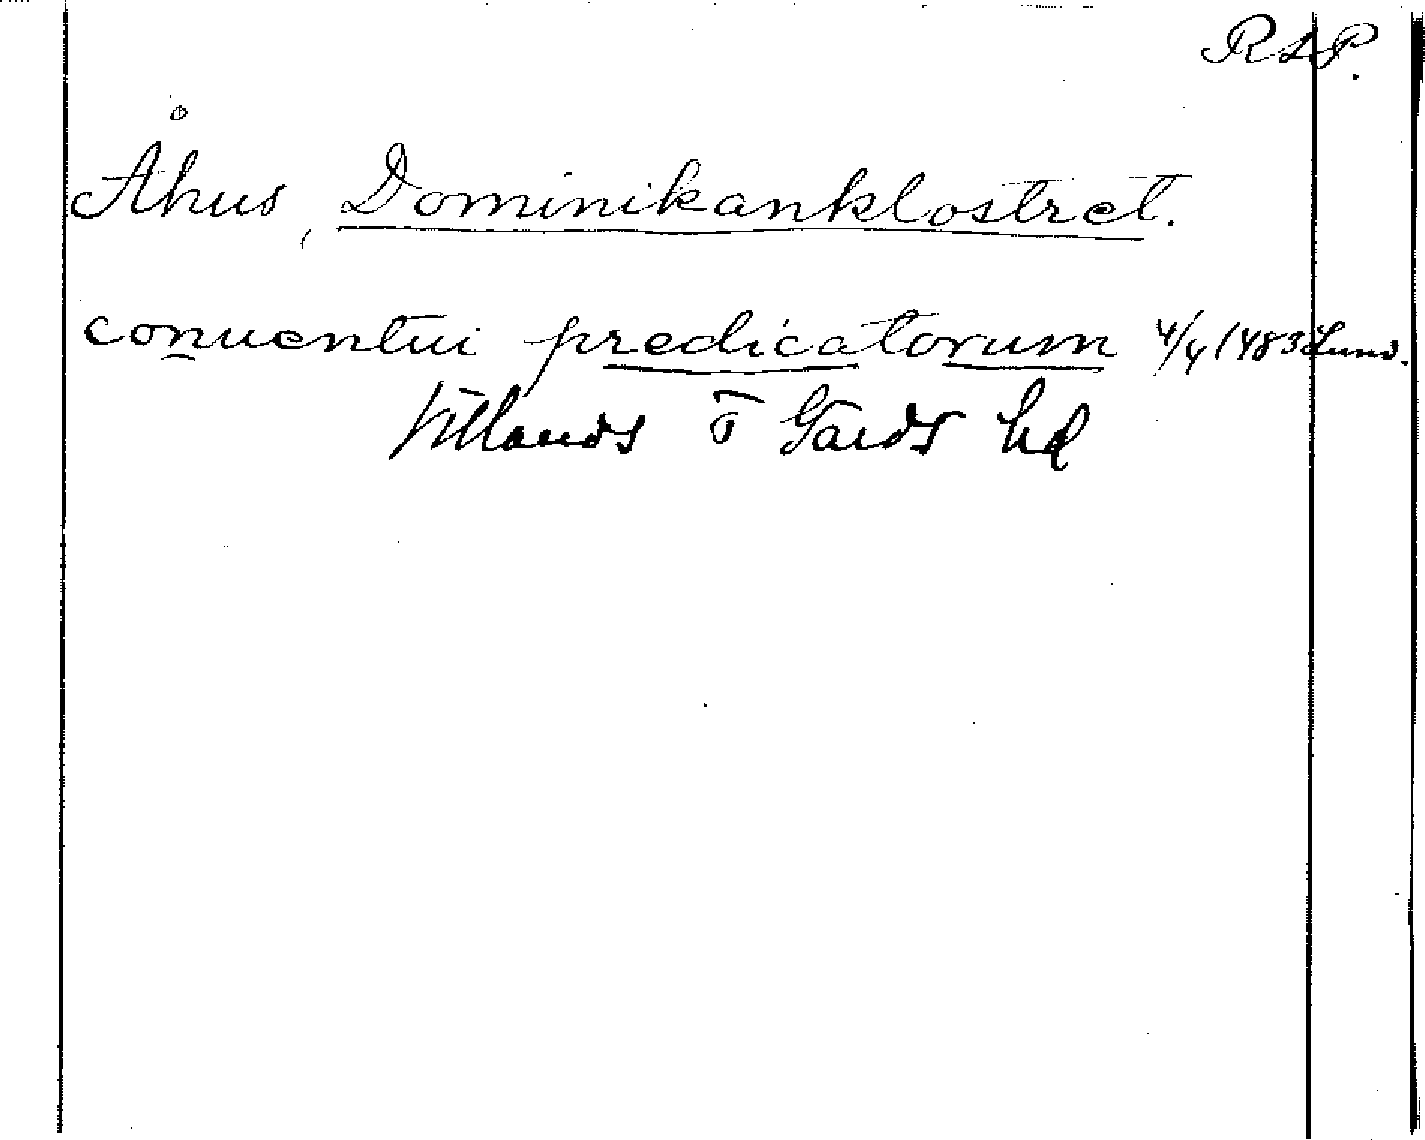 RAP.
Åhus, Dominikanklostret.
conuentui predicatorum 4/4 1483 Lund.
Villands o Gärds hd